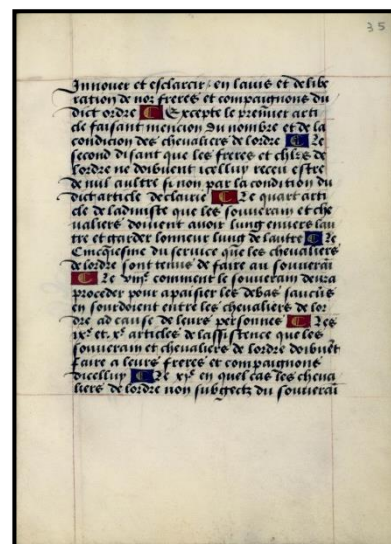 35
Innover et esclarcir / en lauis et delibe
ration de noz freres et compaignons du
dict ordre ¶ Excepte le premier arti
cle faisant mencion du nombre et de la
condicion des cheualiers de lordre ¶ Le
second disant que les freres et chl̅rs de
lordre ne doibuent icelluy receu estre
de nul aultre si non par la condition du
dict article declairie ¶ Le quart arti
cle de ladmiste que les souuerain et che
ualiers doiuent auoir lung enuers lau
tre et garder lonneur lung de lautre ¶ Le
Cincquesme du seruice que les cheualiers
de lordre sont tenus de faire au souuerai̅
¶ Le viije comment le souuerain deura
proceder pour apaisier les debas saucu̅s
en sourdoient entre les cheualiers de lor
dre ad cause de leurs personnes ¶ Les
ixe et xe articles de lassistence que les
souuerain et cheualiers de lordre doibue̅t
faire a leurs freres et compaignons
dicelluy ¶ Le xje en quel cas les cheua
liers de lordre non subgectz du souuerai̅